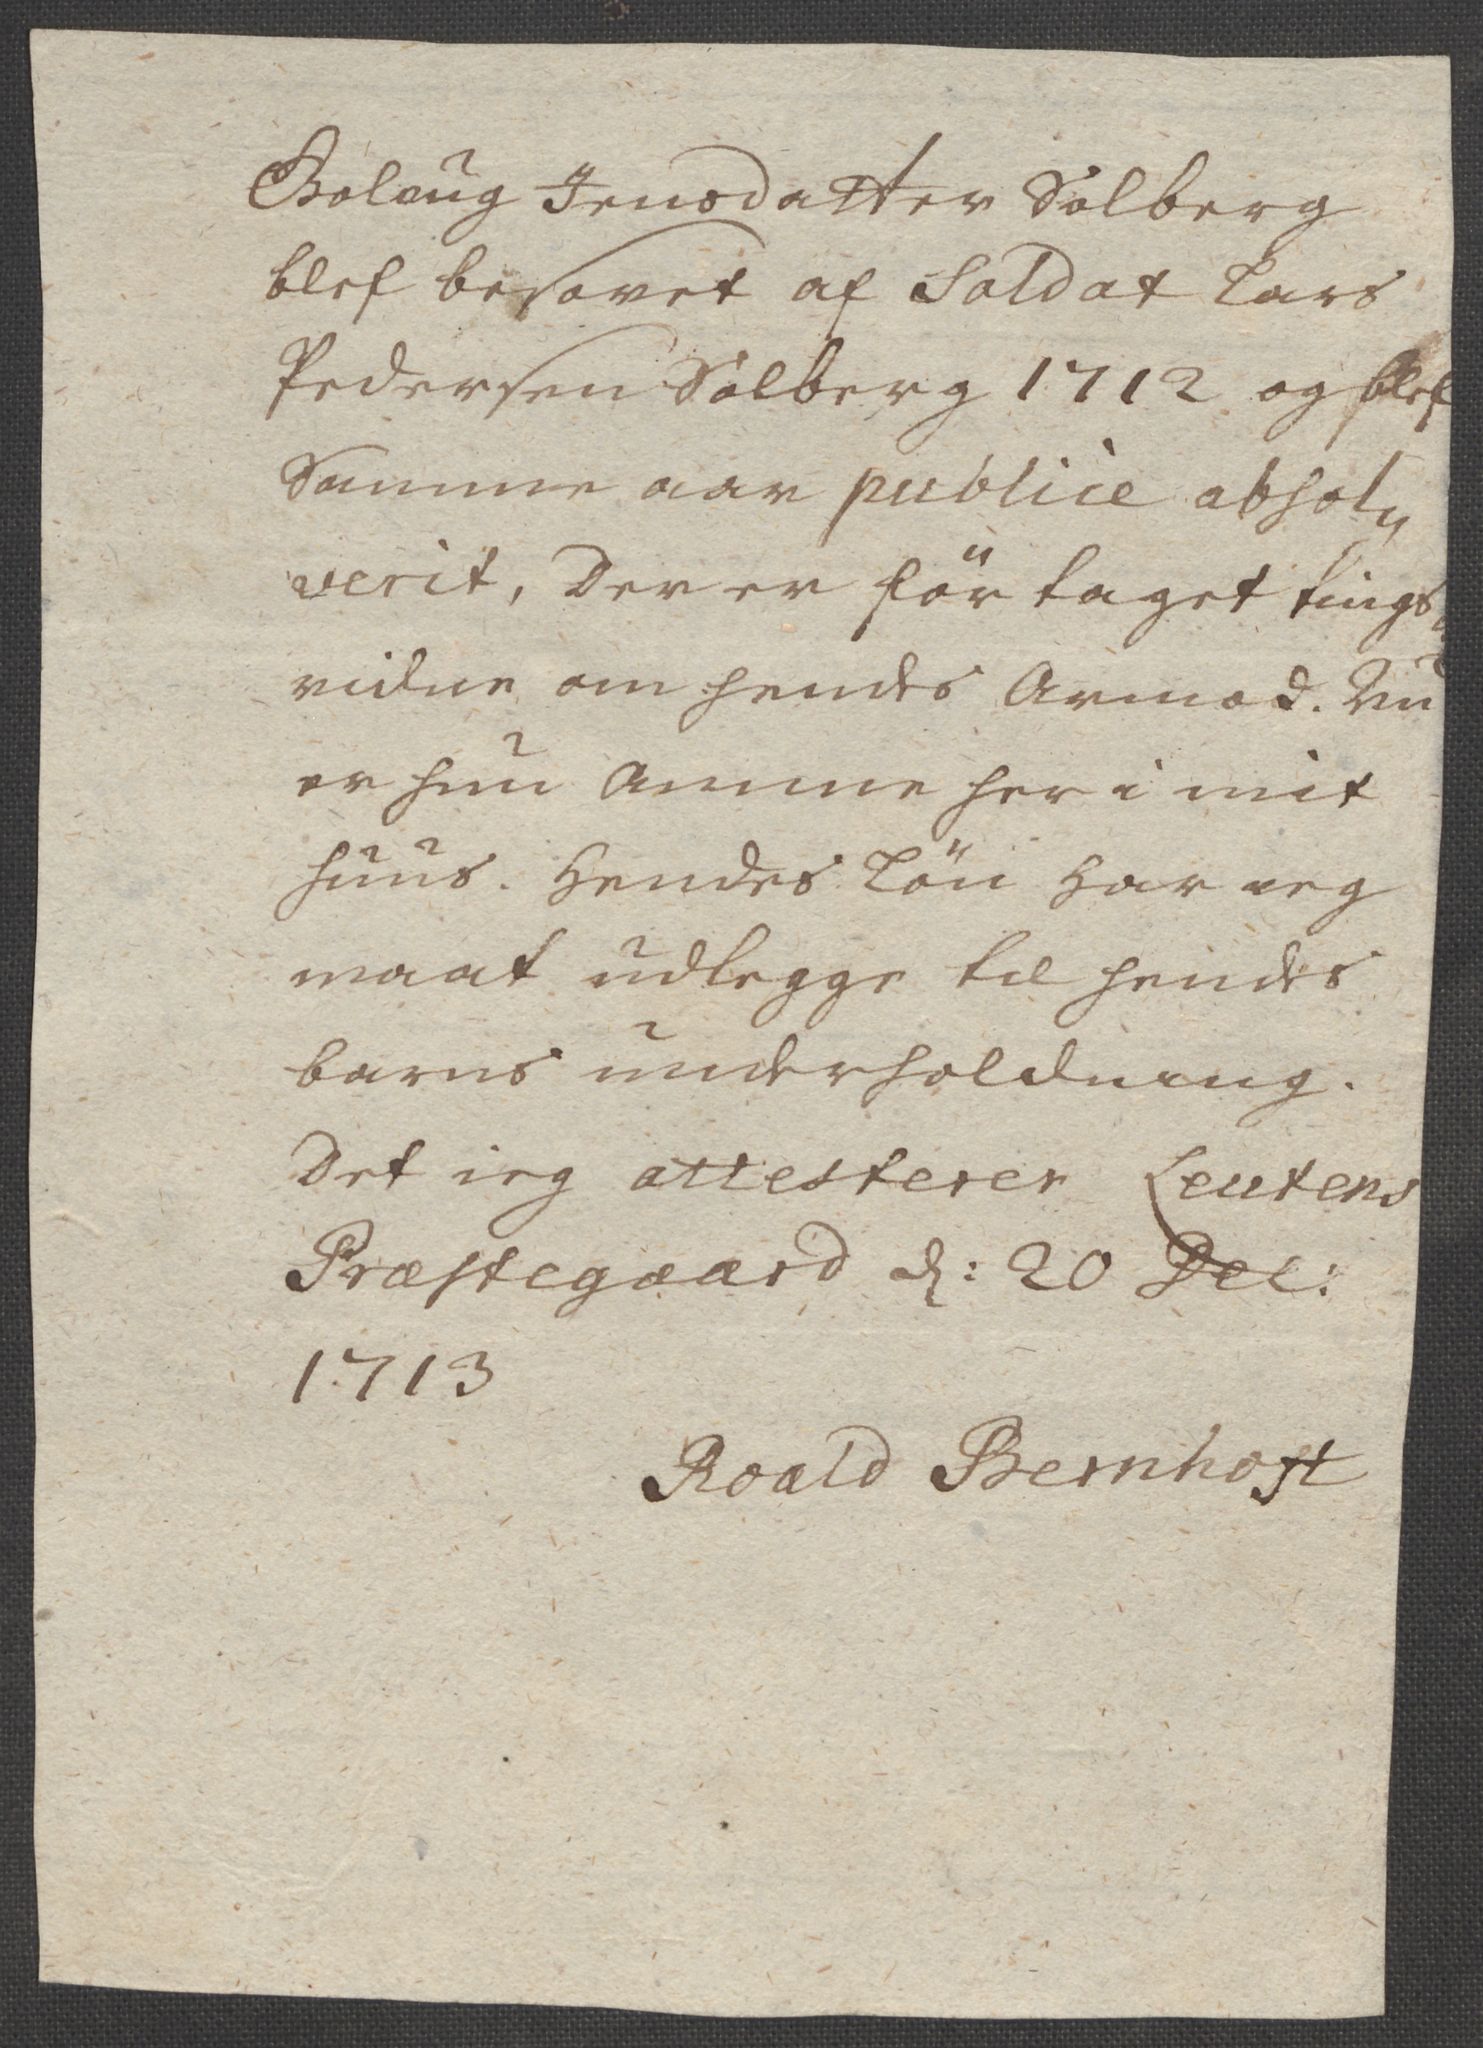 Bolaug Jensdatter Solberg
blef besovet af Soldat Lars
Pedersen Solberg 1712 og blef
Samme aar publice absol„
verit, Der er för taget tings„
vidne om hendes Armod. Nu
er hun Amme her i mit
huus. Hendes Lön har ieg
maat udlegge til hendes
barns underholdning.
Det ieg attesterer Leutens
Præstegaard d: 20 Dec:
1713
Roald Bernhoft